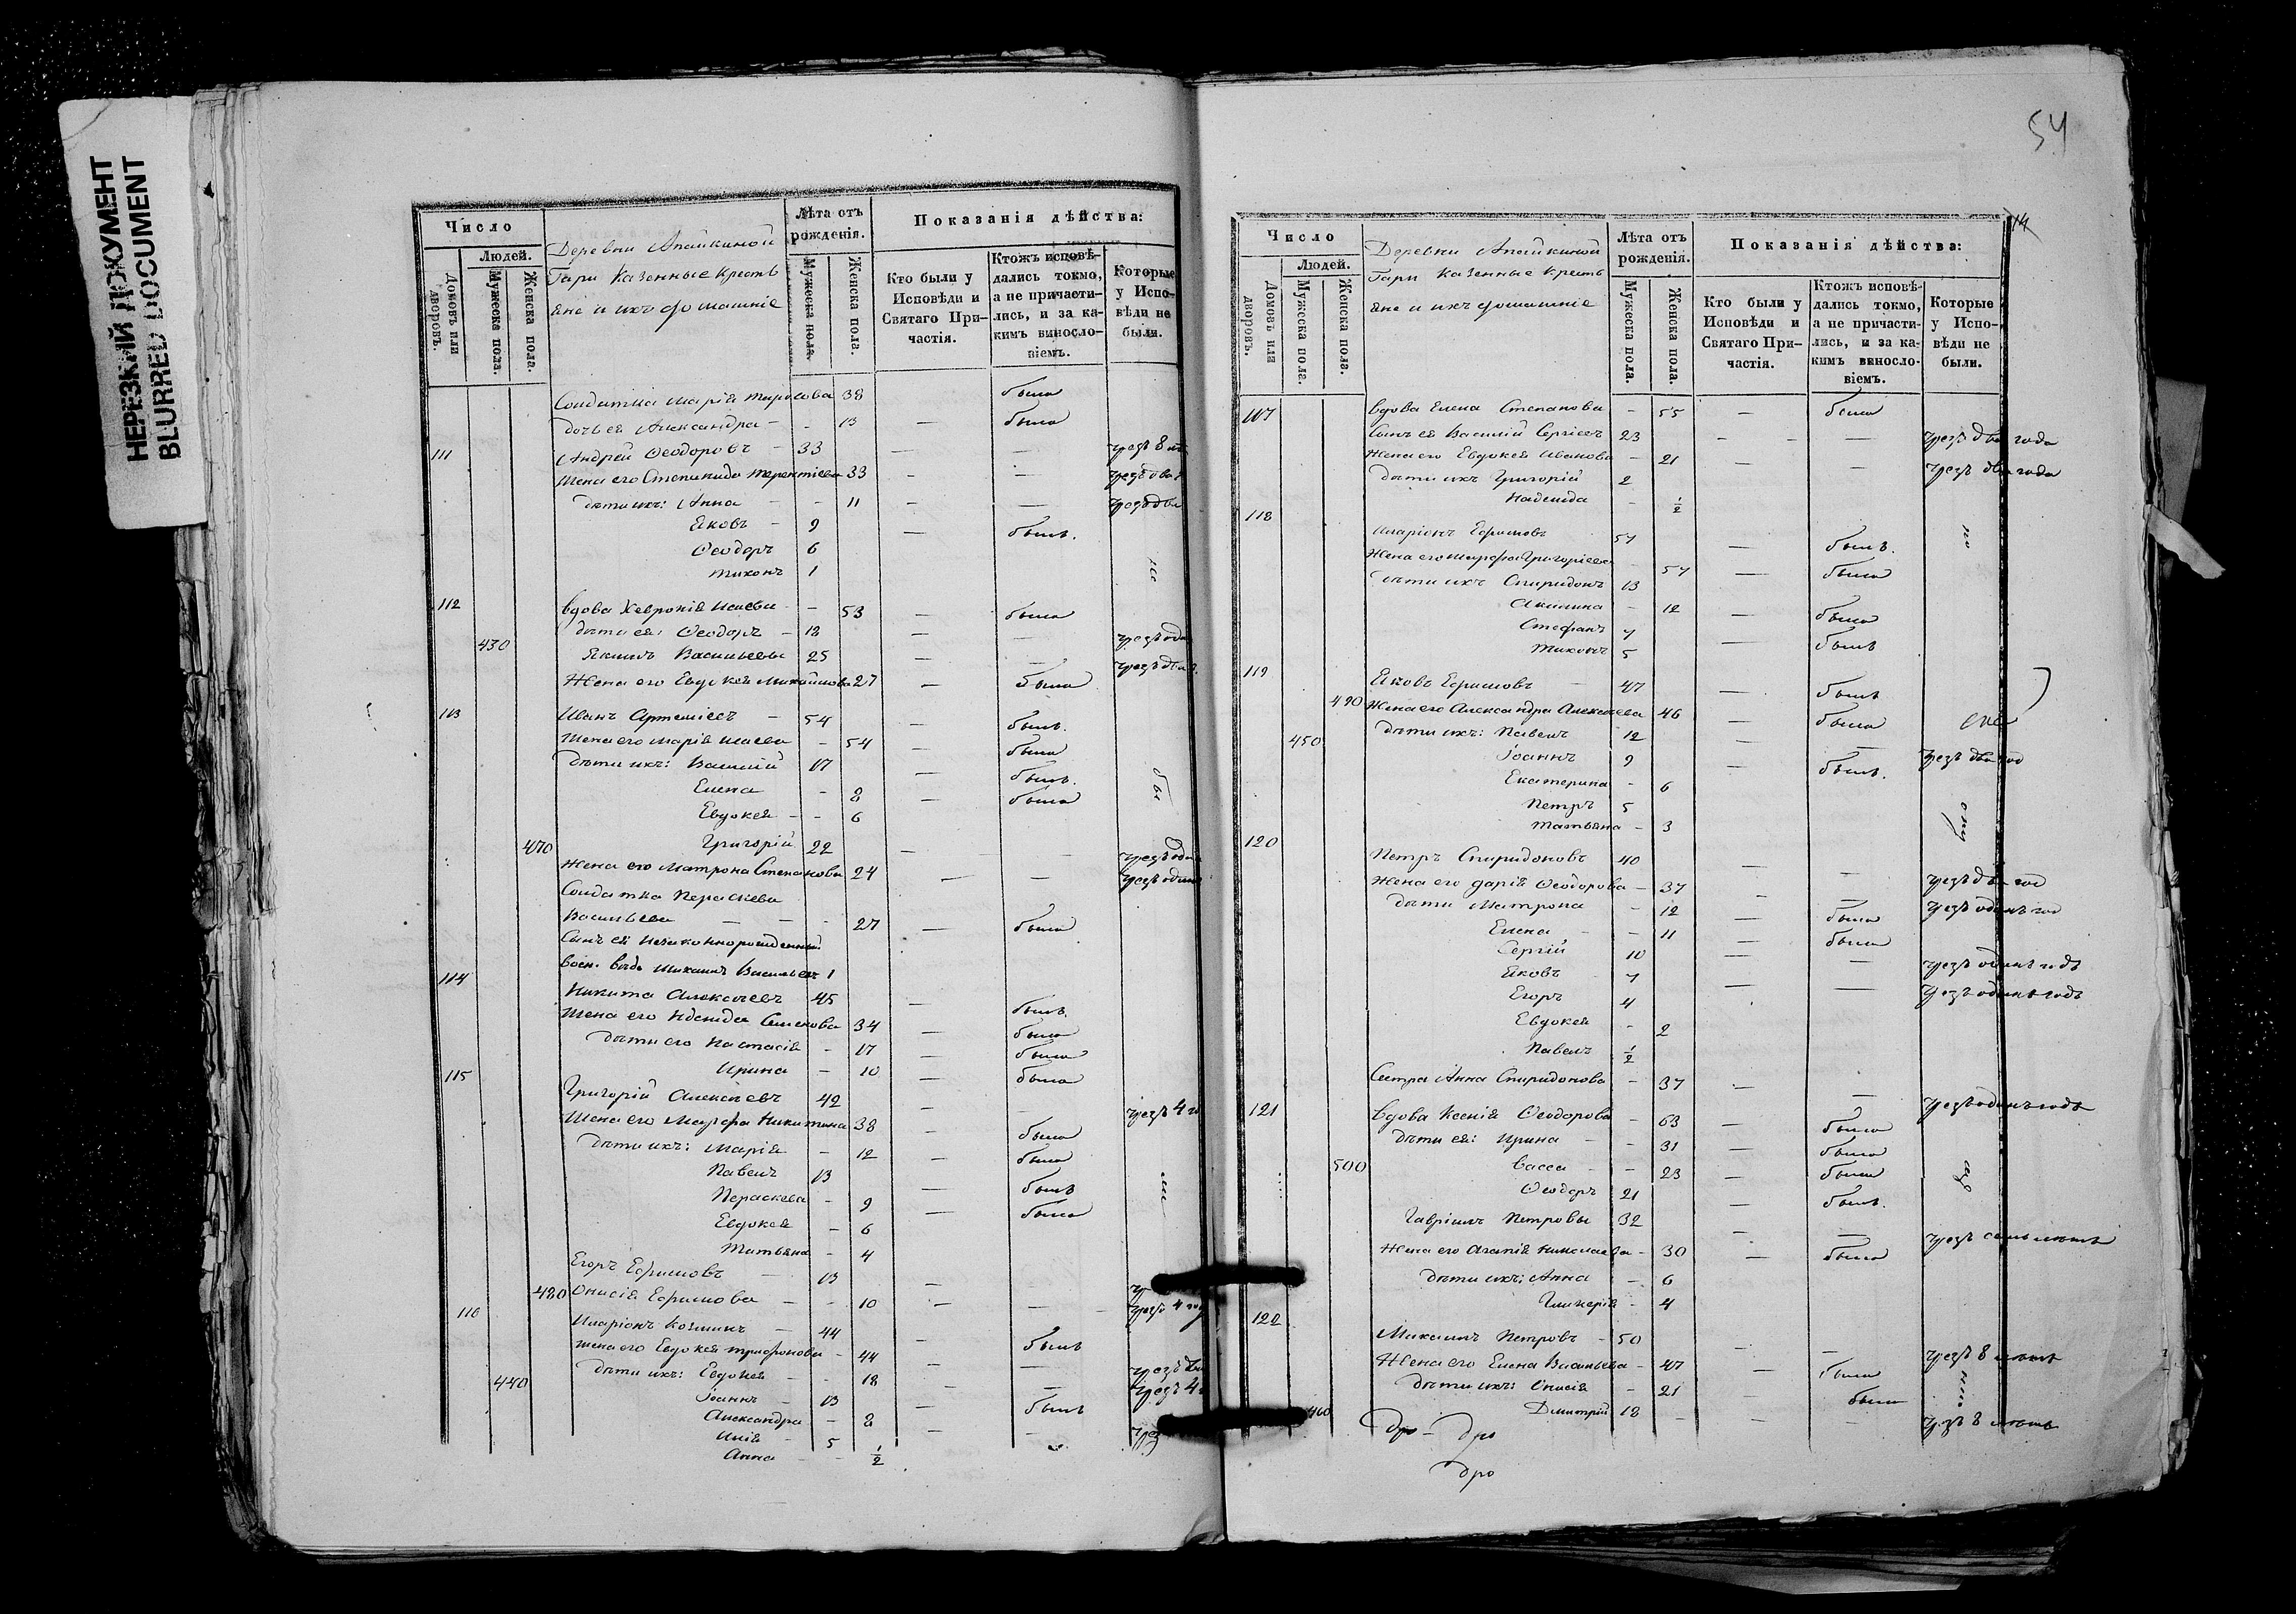 НЕРЕЗКИЙ ДОКУМЕНТ
BLURRED DOCUMENT
Число
Людей.
Домовъ или дворовъ.
Мужеска пола.
Женска пола.
Деревни Апайкиной
Гари Казенные кресть
яне и ихъ домашніе
Лѣта отъ рожденія.
Мужеска пола.
Женска пола.
Показанія дѣйства:
Кто были у Исповѣди и Святаго Причастія.
Ктожъ исповѣдались токмо, а не причастились, и за какимъ винословіемъ.
Которые у Исповѣди не были.
Солдатка Марія 38 — была
дочь ея Александра — 13 — была
111 Андрей Ѳеодоровъ — 33 — — чрезъ 8
Жена его Степанида Терентіева 33 — —
дѣти ихъ: Анна — 11 — —
Яковъ — 9 — былъ.
Ѳеодоръ 6
Тихонъ 1
112 вдова Хевронія — 53 — была
дѣти ея: Ѳеодоръ — 18 — —
430 Якимъ Васильевы 25 — —
Жена его Евдокея Михайлова 27 — была
113 Иванъ Артеміевъ — 54 — былъ.
Жена его Марія — 54 — была
дѣти ихъ: Василій 17 — былъ.
Елена — 8 — была
Евдокея — 6
470 Григорій 22 — —
Жена его Матрона Степанова 24 — —
Солдатка Пераскева
Васильева — 27 — была
Сынъ ея незаконнорожденный
Михаилъ Васильевъ 1
114 Никита Алексѣевъ 45 — былъ.
Жена его 34 — была
дѣти его Настасія — 17 — была
Ирина — 10 — была
115 Григорій Алексѣевъ 42 — — чрезъ 4
Жена его Марфа Никитина 38 — была
дѣти ихъ: Марія — 12 — была
Павелъ 13 — былъ
Пераскева — 9 — была
Евдокея — 6
Татьяна — 4
Егоръ Ефимовъ — 13 —
480 Онисія Ефимова — 10 — — чрезъ 4
116 Иларіонъ Козминъ — 44 — былъ
жена его Евдокея Трифонова — 44 — —
дѣти ихъ: Евдокея — 18 — — чрезъ 4
440 Іоаннъ — 13 — былъ
Александра — 8 — —
5
Анна — ½
54
14
Число
Людей.
Домовъ или дворовъ.
Мужеска пола.
Женска пола.
Деревни Апайкиной
Гари Казенные кресть
яне и ихъ домашніе
Лѣта отъ рожденія.
Мужеска пола.
Женска пола.
Показанія дѣйства:
Кто были у Исповѣди и Святаго Причастія.
Ктожъ исповѣдались токмо, а не причастились, и за какимъ винословіемъ.
Которые у Исповѣди не были.
117 вдова Елена Степанова — 55 — была
Сынъ ея Василій Сергіевъ 23 — — чрезъ два года
Жена его Евдокея Иванова — 21 — — чрезъ два года
дѣти ихъ Григорій 2
Надежда — ½
118 Иларіонъ Ефимовъ 57 — былъ.
Жена его Марфа Григоріева 57 — была
дѣти ихъ Спиридонъ 13
Акилина — 12 — была
Стефанъ 7 — былъ
Тихонъ 5
119 Яковъ Ефимовъ — 47 — былъ
490 Жена его Александра Алексѣева 46 — была
450 дѣти ихъ: Павелъ 12 — — чрезъ два год
Іоаннъ 9 — былъ.
Екатерина — 6
Петръ 5
Татьяна — 3
120 Петръ Спиридоновъ 40 — — чрезъ два год
Жена его Дарія Ѳеодорова — 37 — — чрезъ одинъ год
дѣти Матрона — 12 — была
Елена — 11 — была
Сергій 10 — — чрезъ одинъ годъ
Яковъ 7 — — чрезъ одинъ годъ
Егоръ 4
Евдокея — 2
Павелъ ½
Сестра Анна Спиридонова — 37 — — чрезъ одинъ годъ
121 вдова Ксенія Ѳеодорова — 63 — была
дѣти ея: Ирина — 31 — была
500 Васса — 23 — была
Ѳеодоръ 21 — былъ.
Гавріилъ Петровы 32 — — чрезъ семь лѣтъ
Жена его Агапія Николаева — 30 — была
дѣти ихъ: Анна — 6
Гликерія — 4
122 Михаилъ Петровъ — 50 — — чрезъ 8 лѣтъ
Жена его Елена Васильева — 47 — была
дѣти ихъ: Онисія — 21 — была
460 Дмитрій 18 — — чрезъ 8 лѣтъ